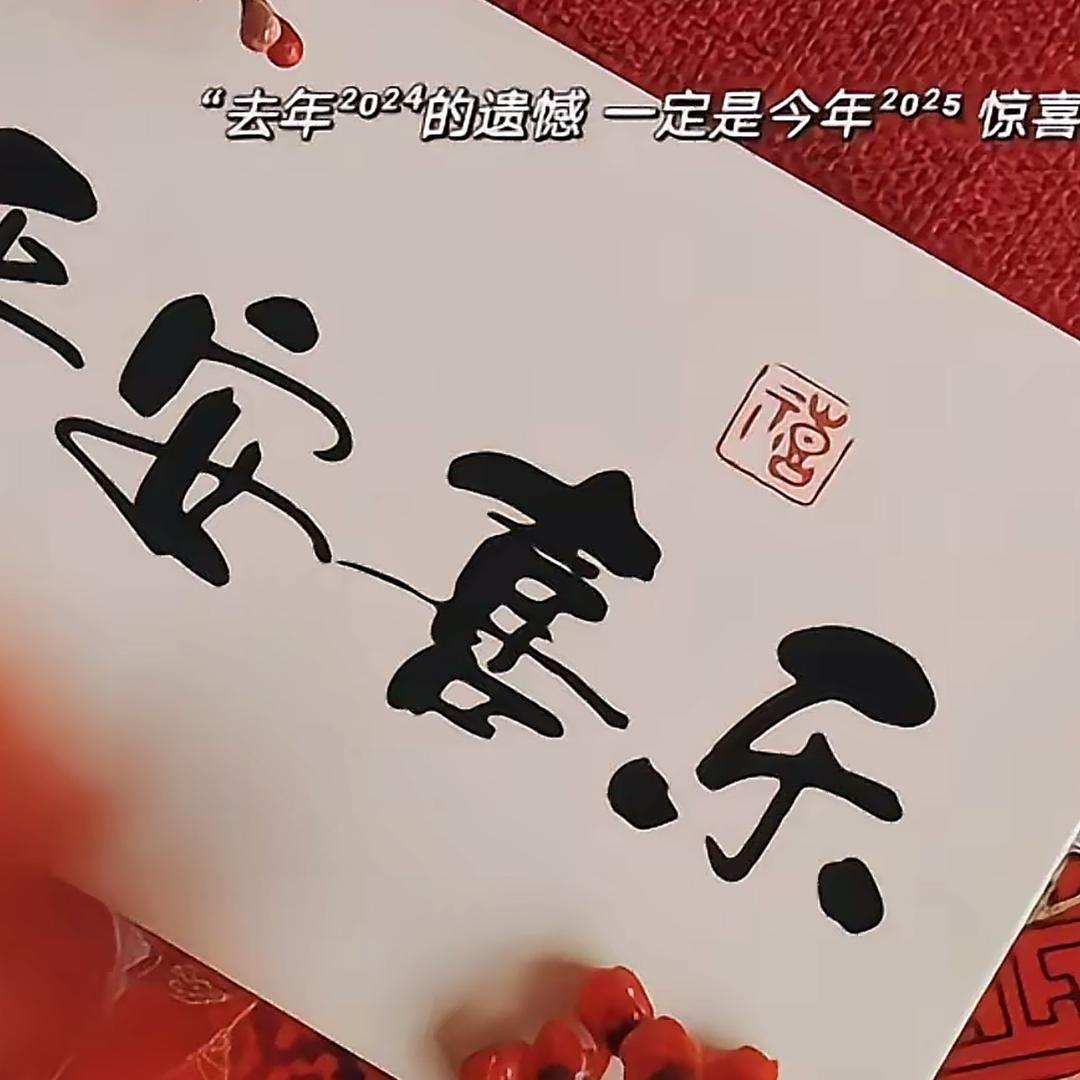 “去年2024的遗憾 一定是今年2025 惊喜
安喜乐
福